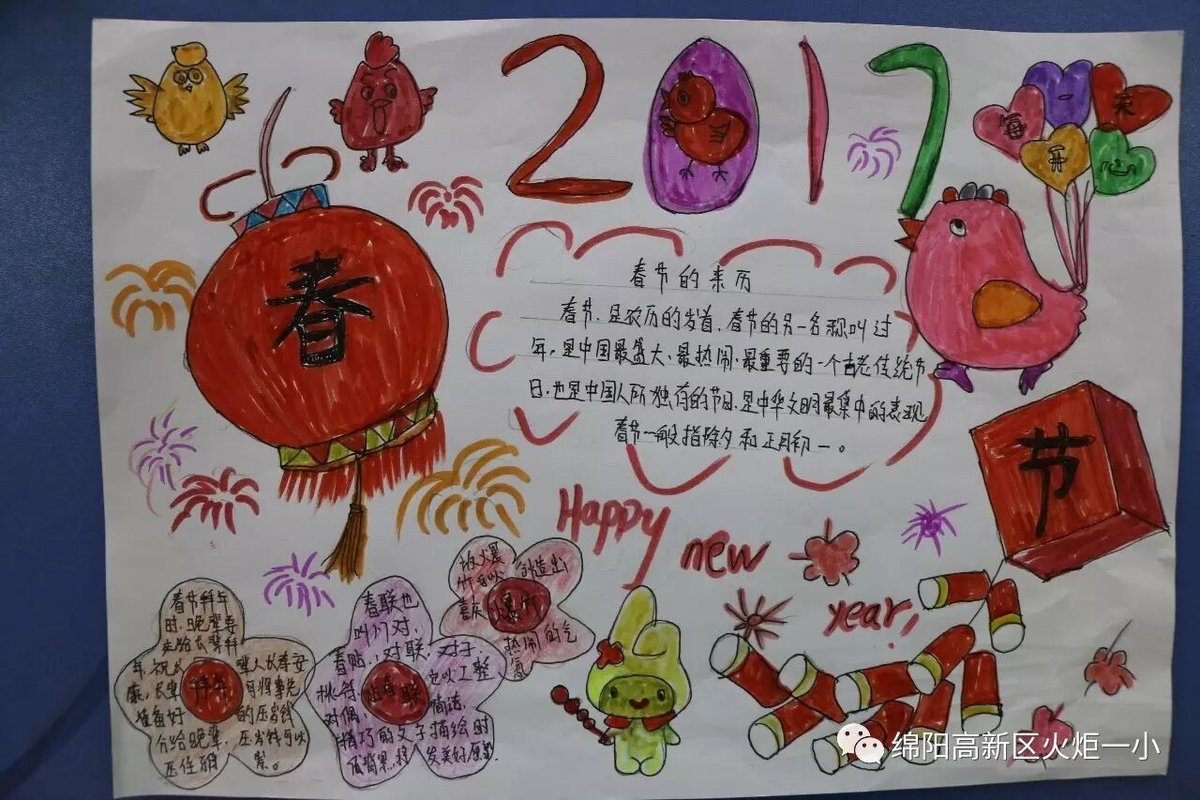 2017
每一天
开心
春
春节的来历
春节,是农历的岁首,春节的另一名称叫过
年,是中国最盛大、最热闹、最重要的一个古老传统节
日,也是中国人所独有的节日,是中华文明最集中的表现
春节一般指除夕和正月初一。
节
Happy
new
year,
放火爆
竹可以创造出
喜庆
爆竹
热闹的气
氛
春节拜年
时,晚辈要
先给长辈拜
年,祝长辈人长寿安
康,长辈可将事先
拜年
准备好的压岁钱
分给晚辈,压岁钱可以
压住邪祟。
春联也
叫门对
春贴,对联,对子,
贴春联
它以工整
对偶,简洁,
精巧的文字描绘时
代背景,抒发美好愿望.
绵阳高新区火炬一小